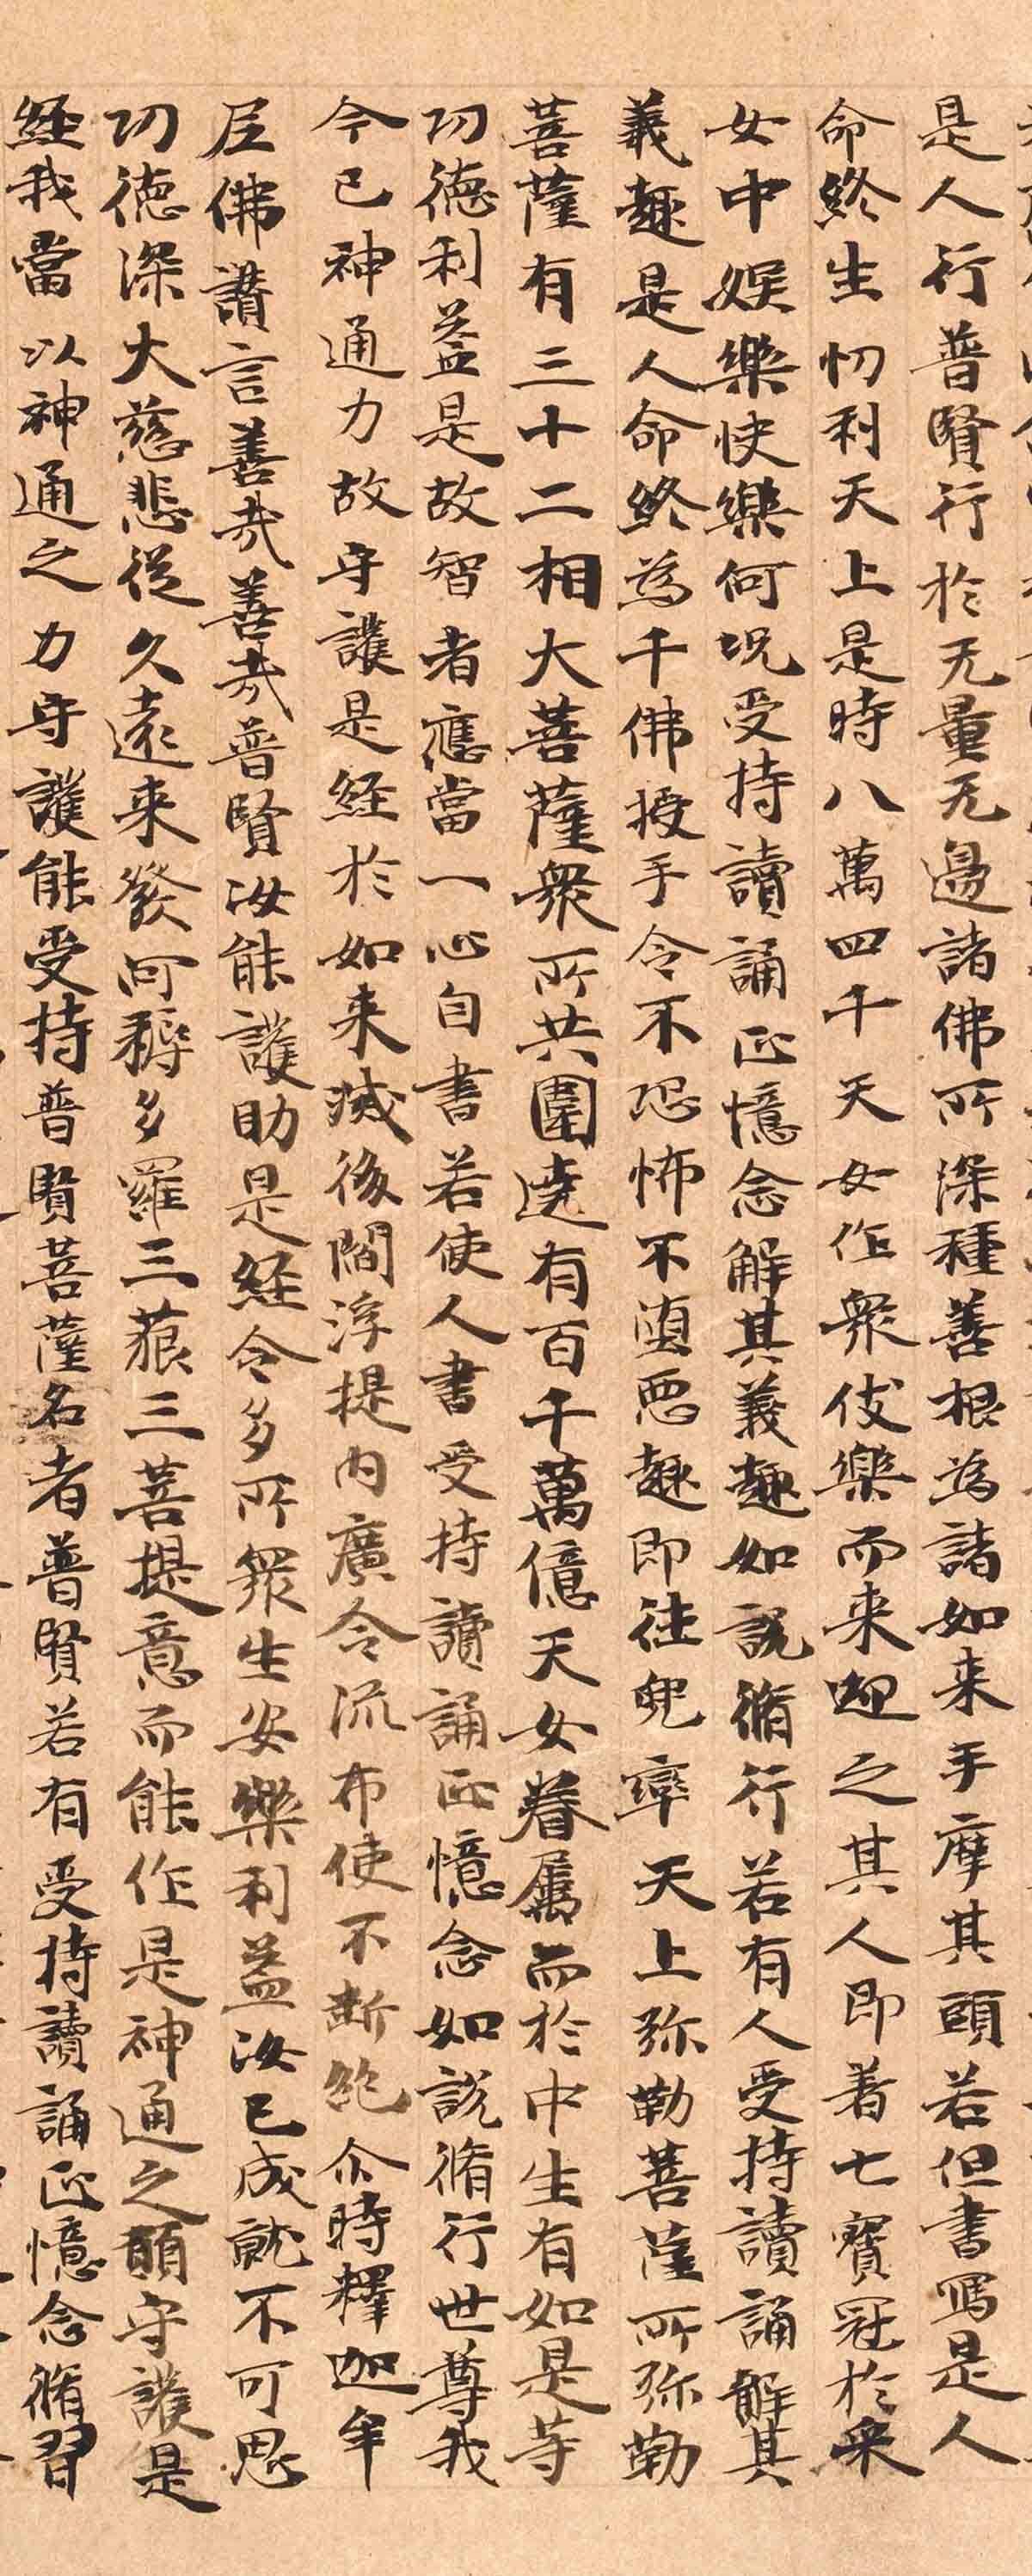 是人行普賢行於无量无邊諸佛所深種善根為諸如来手摩其頭若但書寫是人
命終生忉利天上是時八萬四千天女作衆伎樂而来迎之其人即著七寶冠於采
女中娛樂快樂何況受持讀誦正憶念解其義趣如說脩行若有人受持讀誦解其
義趣是人命終為千佛授手令不恐怖不墮惡趣即往兜率天上弥勒菩薩所弥勒
菩薩有三十二相大菩薩衆所共圍遶有百千萬億天女眷屬而於中生有如是等
功德利益是故智者應當一心自書若使人書受持讀誦正憶念如說脩行世尊我
今已神通力故守護是経於如来滅後閻浮提内廣令流布使不断絶尒時釋迦牟
尼佛讃言善哉善哉普賢汝能護助是経令多所衆生安樂利益汝已成就不可思
功徳深大慈悲從久遠来發阿耨多羅三藐三菩提意而能作是神通之願守護是
経我當以神通之力守護能受持普賢菩薩名者普賢若有受持讀誦正憶念脩習